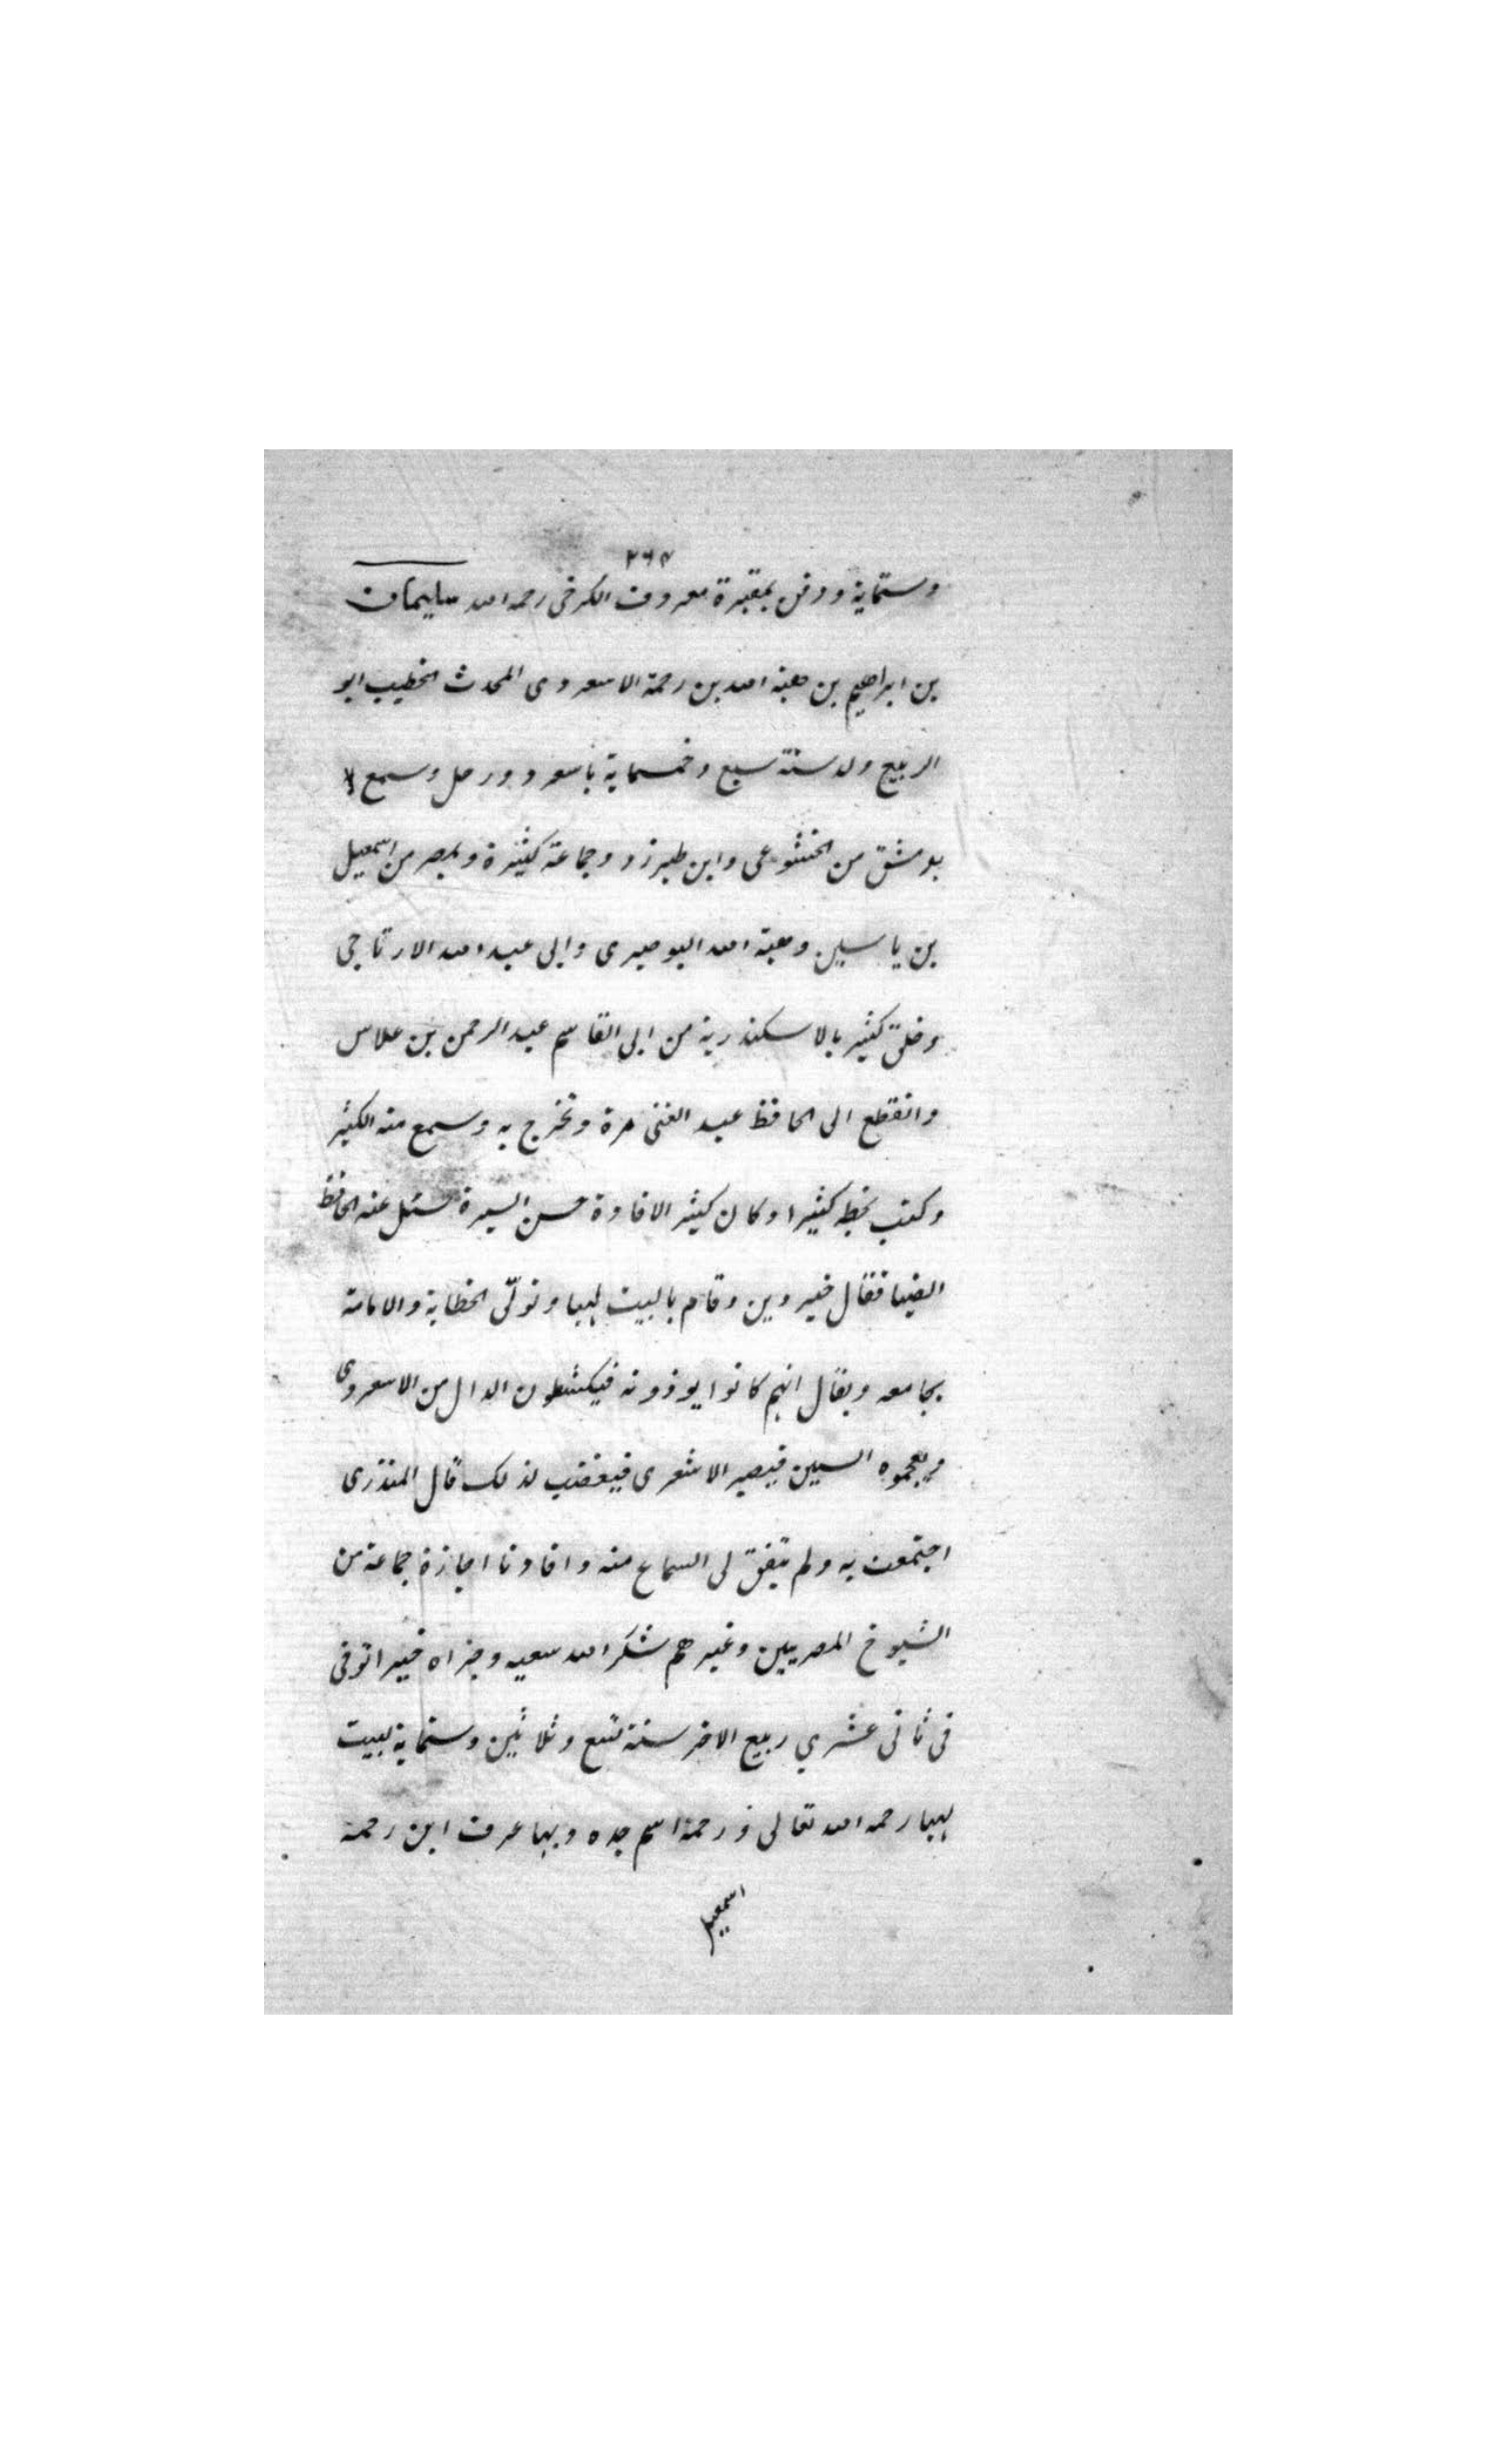 ٢٦٤
وستماية ودفن بمقبرة معروف الكرخى رحمه الله سليمان
بن ابراهيم بن هبة الله بن رحمة الاسعردى المحدث الخطيب ابو
الربيع ولد سنة سبع وخمسماية باسعرد ورحل وسمع
بدمشق من الخشوعى وابن طبرزد وجماعة كثيرة وبمصر من اسمعيل
بن ياسين وهبة الله البوصيرى وابى عبد الله الارتاحى
وخلق كثير بالاسكندرية من ابى القاسم عبد الرحمن بن علاس
وانقطع الى الحافظ عبد الغنى مرة وتخرج به وسمع منه الكثير
وكتب بخطه كثيرا وكان كثير الافادة حسن السيرة سئل عنه الحافظ
الضيا فقال خير دين وقام بالبيت لهيا وتولّى الخطابة والامامة
بجامعه ويقال انهم كانوا يوذونه فيكشطون الدال من الاسعردى
ويعجموه السين فيصير الاشعرى فيغضب لذلك قال المنذرى
اجتمعت به ولم يتفق لى السماع منه وافادنا اجازة جماعة من
الشيوخ المصريين وغيرهم شكر الله سعيه وجزاه خيرا توفى
فى ثانى عشري ربيع الاخر سنة تسع وثلاثين وستماية ببيت
لهيا رحمه الله تعالى ورحمة اسم جده وبها عرف ابن رحمة
اسمعيل